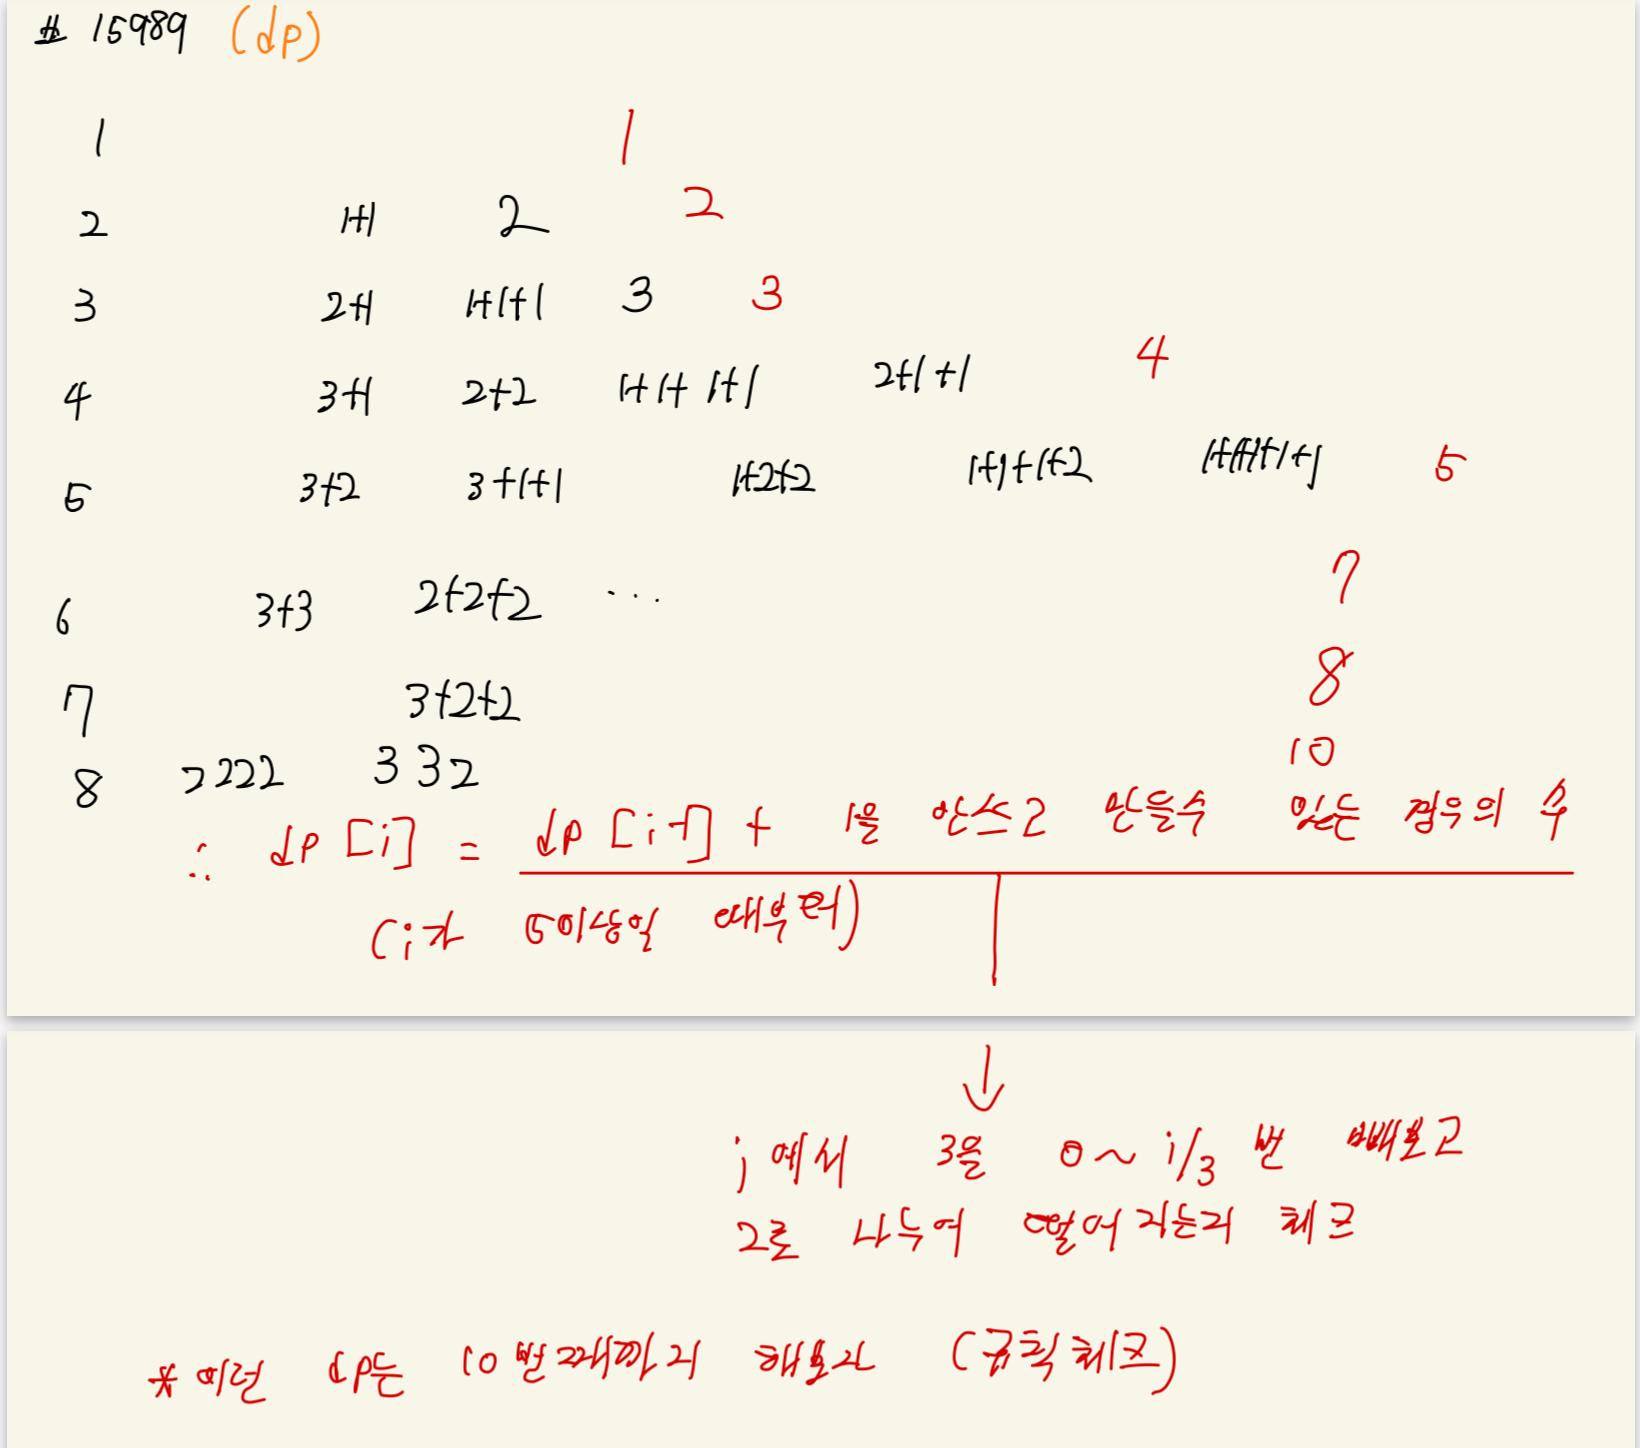 # 15989 (dp)
1 1
2 1+1 2 2
3 2+1 1+1+1 3 3
4 3+1 2+2 1+1+1+1 2+1+1 4
5 3+2 3+1+1 1+2+2 1+1+1+2 1+1+1+1+1 5
6 3+3 2+2+2 ... 7
7 3+2+2 8
8 2222 332 10
∴ dp[i] = dp[i-1] + 1을 안쓰고 만들수 있는 경우의 수
(i가 5이상일 때부터)
↓
i에서 3을 0~i/3 번 빼보고
2로 나누어 떨어지는지 체크
* 이런 dp는 10번째까지 해보자 (규칙체크)